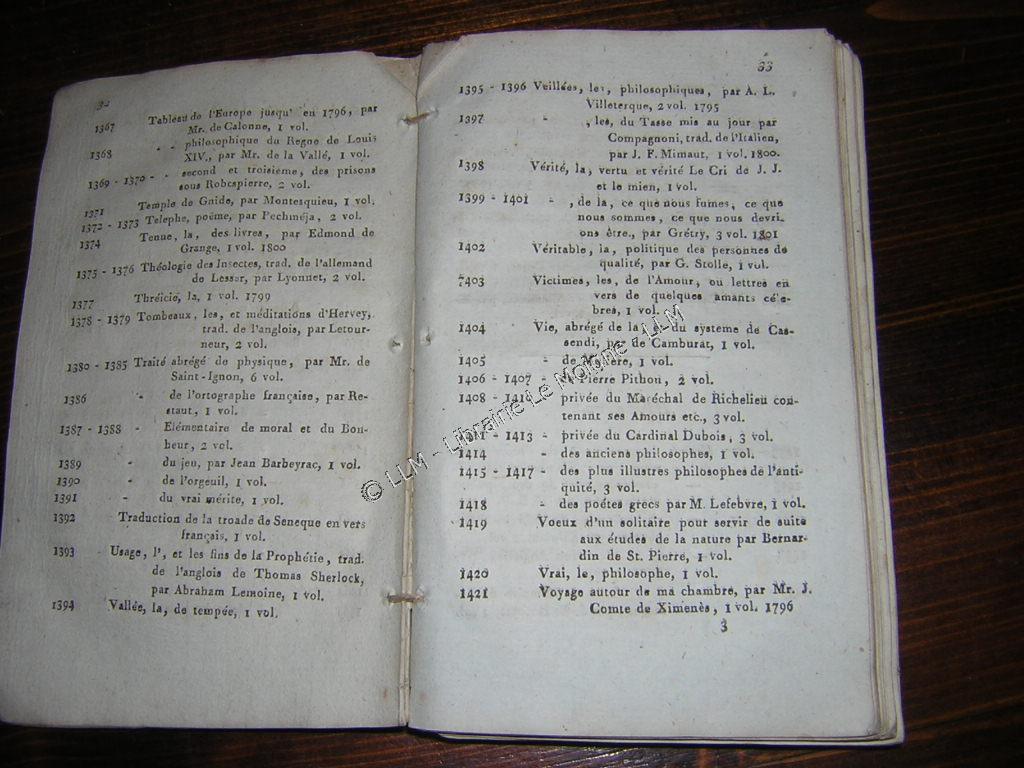 1367 Tableau de l'Europe jusqu' en 1796, par
Mr. de Calonne, 1 vol.
1368 - - philosophique du Regne de Louis
XIV., par Mr. de la Vallé, 1 vol.
1369 - 1370 - - second et troisieme, des prisons
sous Robespierre, 2 vol.
1371 Temple de Gnide, par Montesquieu, 1 vol.
1372 - 1373 Telephe, poëme, par Pechméja, 2 vol.
1374 Tenue, la, des livres, par Edmond de
Grange, 1 vol. 1800
1375 - 1376 Théologie des Insectes, trad. de l'allemand
de Lesser, par Lyonnet, 2 vol.
1377 Thréicie, la, 1 vol. 1799
1378 - 1379 Tombeaux, les, et méditations d'Hervey,
trad. de l'anglois, par Letour-
neur, 2 vol.
1380 - 1385 Traité abrégé de physique, par Mr. de
Saint-Ignon, 6 vol.
1386 - de l'ortographe française, par Re-
staut, 1 vol.
1387 - 1388 - Elémentaire de moral et du Bon-
heur, 2 vol.
1389 - du jeu, par Jean Barbeyrac, 1 vol.
1390 - de l'orgeuil, 1 vol.
1391 - du vrai mérite, 1 vol.
1392 Traduction de la troade de Seneque en vers
français, 1 vol.
1393 - Usage, l', et les fins de la Prophétie, trad.
de l'anglois de Thomas Sherlock,
par Abraham Lemoine, 1 vol.
1394 Vallée, la, de tempée, 1 vol.
33
1395 - 1396 Veillées, les, philosophiques, par A. L.
Villeterque, 2 vol. 1795
1397 - , les, du Tasse mis au jour par
Compagnoni, trad. de l'Italien,
par J. F. Mimaut, 1 vol. 1800.
1398 Vérité, la, vertu et vérité Le Cri de J. J.
et le mien, 1 vol.
1399 - 1401 - , de la, ce que nous fumes, ce que
nous sommes, ce que nous devri-
ons être., par Grétry, 3 vol. 1801
1402 Véritable, la, politique des personnes de
qualité, par G. Stolle, 1 vol.
7403 Victimes, les, de l'Amour, ou lettres en
vers de quelques amants célé-
bres, 1 vol.
1404 Vie, abrégé de la et du systeme de Gas-
sendi, par de Camburat, 1 vol.
1405 - de Moliere, 1 vol.
1406 - 1407 - de Pierre Pithou, 2 vol.
1408 - 1410 - privée du Maréchal de Richelieu con-
tenant ses Amours etc., 3 vol.
1411 - 1413 - privée du Cardinal Dubois, 3 vol.
1414 - des anciens philosophes, 1 vol.
1415 - 1417 - des plus illustres philosophes de l'anti-
quité, 3 vol.
1418 - des poétes grecs par M. Lefebvre, 1 vol.
1419 Voeux d'un solitaire pour servir de suite
aux études de la nature par Bernar-
din de St. Pierre, 1 vol.
1420 Vrai, le, philosophe, 1 vol.
1421 Voyage autour de ma chambre, par Mr. J.
Comte de Ximenès, 1 vol. 1796
3
© LLM - Librairie Le Moine - LLM